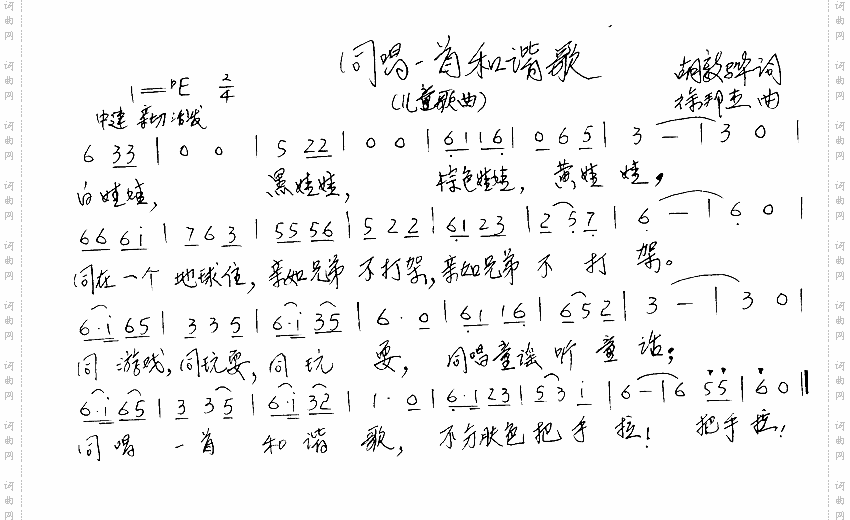 同唱一首和谐歌
(儿童歌曲)
1=♭E 2/4
中速 亲切 活泼
胡敦骅词
徐邦杰曲
6 33 | 0 0 | 5 22 | 0 0 | 6116 | 0 6 5 | 3 — | 3 0 |
白娃娃, 黑娃娃, 棕色娃娃, 黄娃娃,
66 6i | 7 6 3 | 55 56 | 5 2 2 | 61 23 | 2 57 | 6 — | 6 0 |
同在一个地球住,亲如兄弟不打架,亲如兄弟不打架。
6·i 65 | 3 3 5 | 6·i 35 | 6·0 | 61 16 | 65 2 | 3 — | 3 0 |
同游戏,同玩耍,同玩耍,同唱童谣听童话;
6·i 65 | 3 35 | 6·i 32 | 1·0 | 6·1 23 | 53 i | 6 — | 6 55 | 6 0 ‖
同唱一首和谐歌,不分肤色把手拉!把手拉!
词曲网